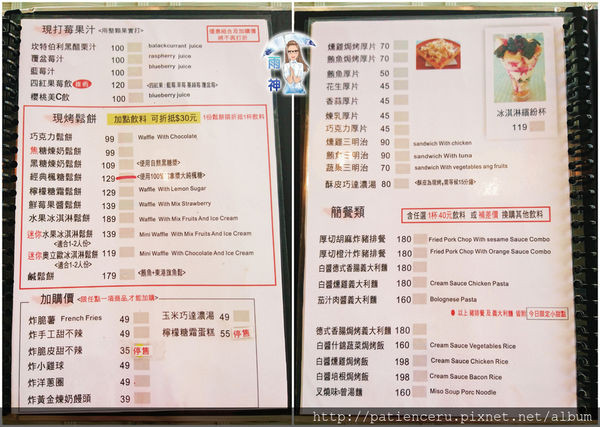 現打莓果汁 <用整顆果實打>
優惠組合及加購價
將不再打折
坎特伯利黑醋栗汁 100 balackcurrant juice
覆盆莓汁 100 raspberry juice
藍莓汁 100 blueberry juice
四紅果莓飲 推薦 120 <四紅果:藍莓.草莓.蔓越莓.覆盆莓>
櫻桃美C飲 100 blueberry juice
雨神
現烤鬆餅 加點飲料 可折抵$30元 1份鬆餅限折抵1杯飲料
巧克力鬆餅 99 Waffle With Chocolate
焦糖煉奶鬆餅 109
黑糖煉奶鬆餅 109 <使用自熬黑糖漿>
經典楓糖鬆餅 129 <使用100%加拿大純楓糖>
檸檬糖霜鬆餅 129 Waffle With Lemon Sugar
鮮莓果醬鬆餅 129 Waffle With Mix Strawberry
水果冰淇淋鬆餅 189 Waffle With Mix Fruits And Ice Cream
迷你水果冰淇淋鬆餅 139 Mini Waffle With Mix Fruits And Ice Cream
(適合1-2人份)
迷你奧立歐冰淇淋鬆餅 119 Mini Waffle With Chocolate And Ice Cream
(適合1-2人份)
鹹鬆餅 179 <鮪魚+東港旗魚鬆>
加購價 <限任點一項商品才能加購>
炸脆薯 French Fries 49
炸手工甜不辣 49
炸脆皮甜不辣 35 停售
炸小雞球 49
炸洋蔥圈 49
炸黃金煉奶饅頭 39
玉米巧達濃湯 49
檸檬糖霜蛋糕 55 停售
燻雞焗烤厚片 70
鮪魚焗烤厚片 70
鮪魚厚片 50
花生厚片 45
香蒜厚片 45
煉乳厚片 45
巧克力厚片 45
燻雞三明治 90 sandwich With chicken
鮪魚三明治 90 sandwich With tuna
蔬果三明治 70 sandwich With vegetables ang fruits
酥皮巧達濃湯 80 (酥皮為現烤,需等候15分鐘)
冰淇淋繽紛杯
119
簡餐類 含任選1杯40元飲料 或 補差價 換購其他飲料
厚切胡麻炸豬排餐 180 Fried Pork Chop With sesame Sauce Combo
厚切橙汁炸豬排餐 180 Fried Pork Chop With Orange Sauce Combo
白醬德式香腸義大利麵 180
白醬燻雞義大利麵 180 Cream Sauce Chicken Pasta
茄汁肉醬義大利麵 160 Bolognese Pasta
以上 豬排餐 及 義大利麵 皆附 今日限定小甜點
德式香腸焗烤義大利麵 180
白醬什錦蔬菜焗烤飯 160 Cream Sauce Vegetables Rice
白醬燻雞焗烤飯 198 Cream Sauce Chicken Rice
白醬培根焗烤飯 198 Cream Sauce Bacon Rice
叉燒味噌湯麵 160 Miso Soup Porc Noodle
http://patienceru.pixnet.net/album